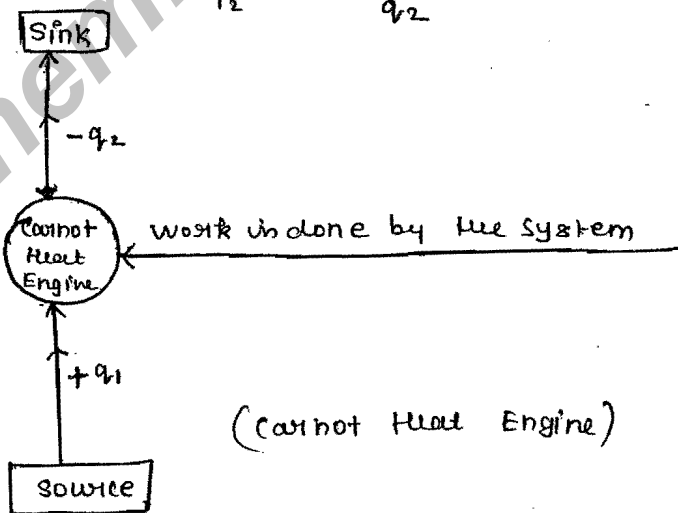 q2
Sink
-q2
Carnot
Heat
Engine
work is done by the system
+q1
(Carnot Heat Engine)
source